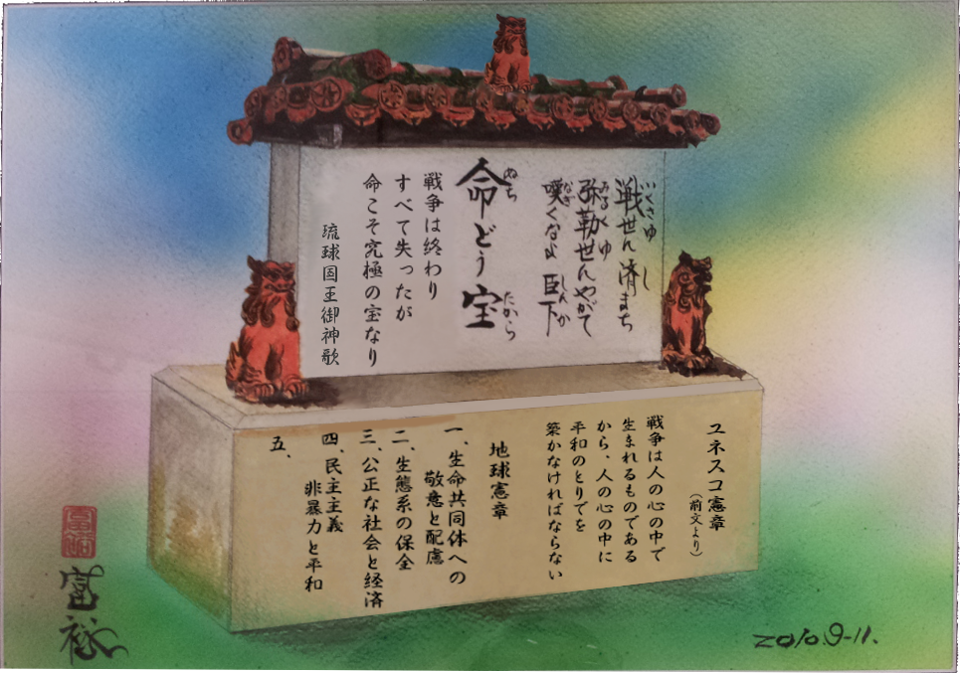 いくさゆ し
戦世ん済まち
みるくゆ
弥勒世んやがて
なぎ しんか
嘆くなよ 臣下
ぬち たから
命どう宝
戦争は終わり
すべて失ったが
命こそ究極の宝なり
琉球国王御神歌
ユネスコ憲章
（前文より）
戦争は人の心の中で
生まれるものである
から、人の心の中に
平和のとりでを
築かなければならない
地球憲章
一、生命共同体への
敬意と配慮
二、生態系の保全
三、公正な社会と経済
四、民主主義
非暴力と平和
五、
富裕
2010.9-11.